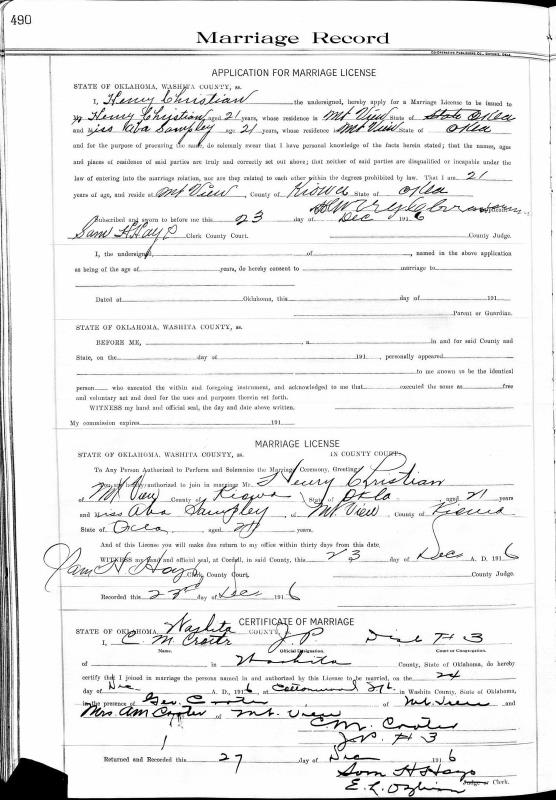 490
Marriage Record
CO-OPERATIVE PUBLISHING CO., GUTHRIE, OKLA.
APPLICATION FOR MARRIAGE LICENSE
STATE OF OKLAHOMA, WASHITA COUNTY, ss.
I, Henry Christian the undersigned, hereby apply for a Marriage License to be issued to
Mr Henry Christian aged 21 years, whose residence is Mt View State of State Okla
and Miss Aba Sampley age 21 years, whose residence is Mt View State of Okla
and for the purpose of procuring the same, do solemnly swear that I have personal knowledge of the facts herein stated; that the names, ages
and places of residence of said parties are truly and correctly set out above; that neither of said parties are disqualified or incapable under the
law of entering into the marriage relation, nor are they related to each other within the degrees prohibited by law. That I am 21
years of age, and reside at Mt View, County of Kiowa State of Okla
Subscribed and sworn to before me this 23 day of Dec 1916
Sam H Hays Clerk County Court. County Judge.
I, the undersigned, of , named in the above application
as being of the age of years, do hereby consent to marriage to
Dated at Oklahoma, this day of 191
Parent or Guardian.
STATE OF OKLAHOMA, WASHITA COUNTY, ss.
BEFORE ME, , a in and for said County and
State, on the day of 191 , personally appeared
to me known to be the identical
person who executed the within and foregoing instrument, and acknowledged to me that executed the same as free
and voluntary act and deed for the uses and purposes therein set forth.
WITNESS my hand and official seal, the day and date above written.
My commission expires 191
MARRIAGE LICENSE
STATE OF OKLAHOMA, WASHITA COUNTY, ss. IN COUNTY COURT
To Any Person Authorized to Perform and Solemnize the Marriage Ceremony, Greeting:
You are hereby authorized to join in marriage Mr. Henry Christian
of Mt View County of Kiowa State of Okla , aged 21 years
and Miss Aba Sampley , of Mt View County of Kiowa
State of Okla aged 21 years.
And of this License you will make due return to my office within thirty days from this date.
WITNESS my hand and official seal, at Cordell, in said County, this 23 day of Dec A. D. 1916
Sam H Hays Clerk County Court, County Judge.
Recorded this 23 day of Dec 1916
CERTIFICATE OF MARRIAGE
STATE OF OKLAHOMA, Washita COUNTY, ss.
I, C. M. Crater J P Dist # 3
Name. Official Designation. Court or Congregation.
of in Washita County, State of Oklahoma, do hereby
certify that I joined in marriage the persons named in and authorized by this License to be married, on the 24
day of Dec A. D., 1916 at Cottonwood in Washita County, State of Oklahoma,
in the presence of Geo. Crater of Mt View and
Mrs of Mt. View
C M. Crater
J.P. # 3
Returned and Recorded this 27 day of Dec 1916
Sam H Hays
Judge or Clerk.